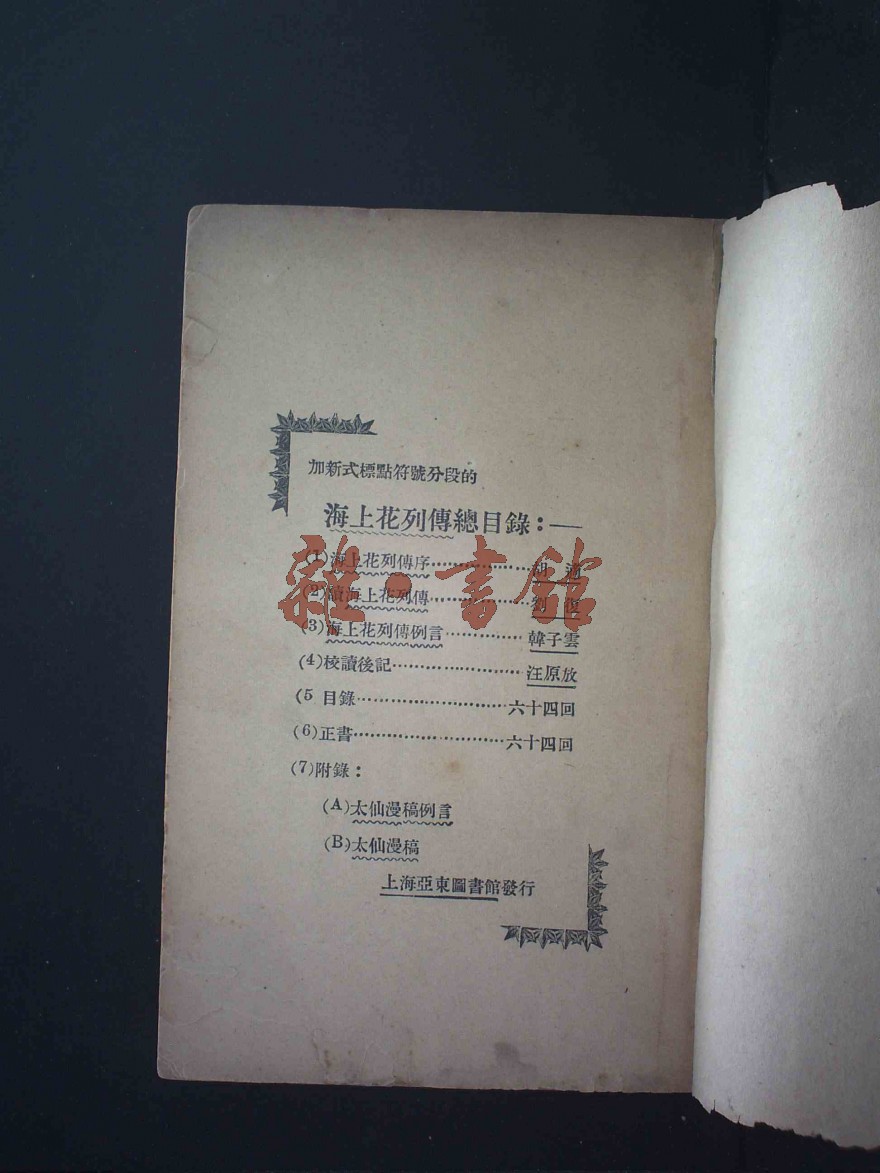 加新式標點符號分段的
海上花列傳總目錄：—
(1)海上花列傳序………………胡適
(2)讀海上花列傳………………劉復
(3)海上花列傳例言……………韓子雲
(4)校讀後記……………………汪原放
(5 目錄…………………………六十四回
(6)正書…………………………六十四回
(7)附錄：
(A)太仙漫稿例言
(B)太仙漫稿
上海亞東圖書館發行
雜·書館